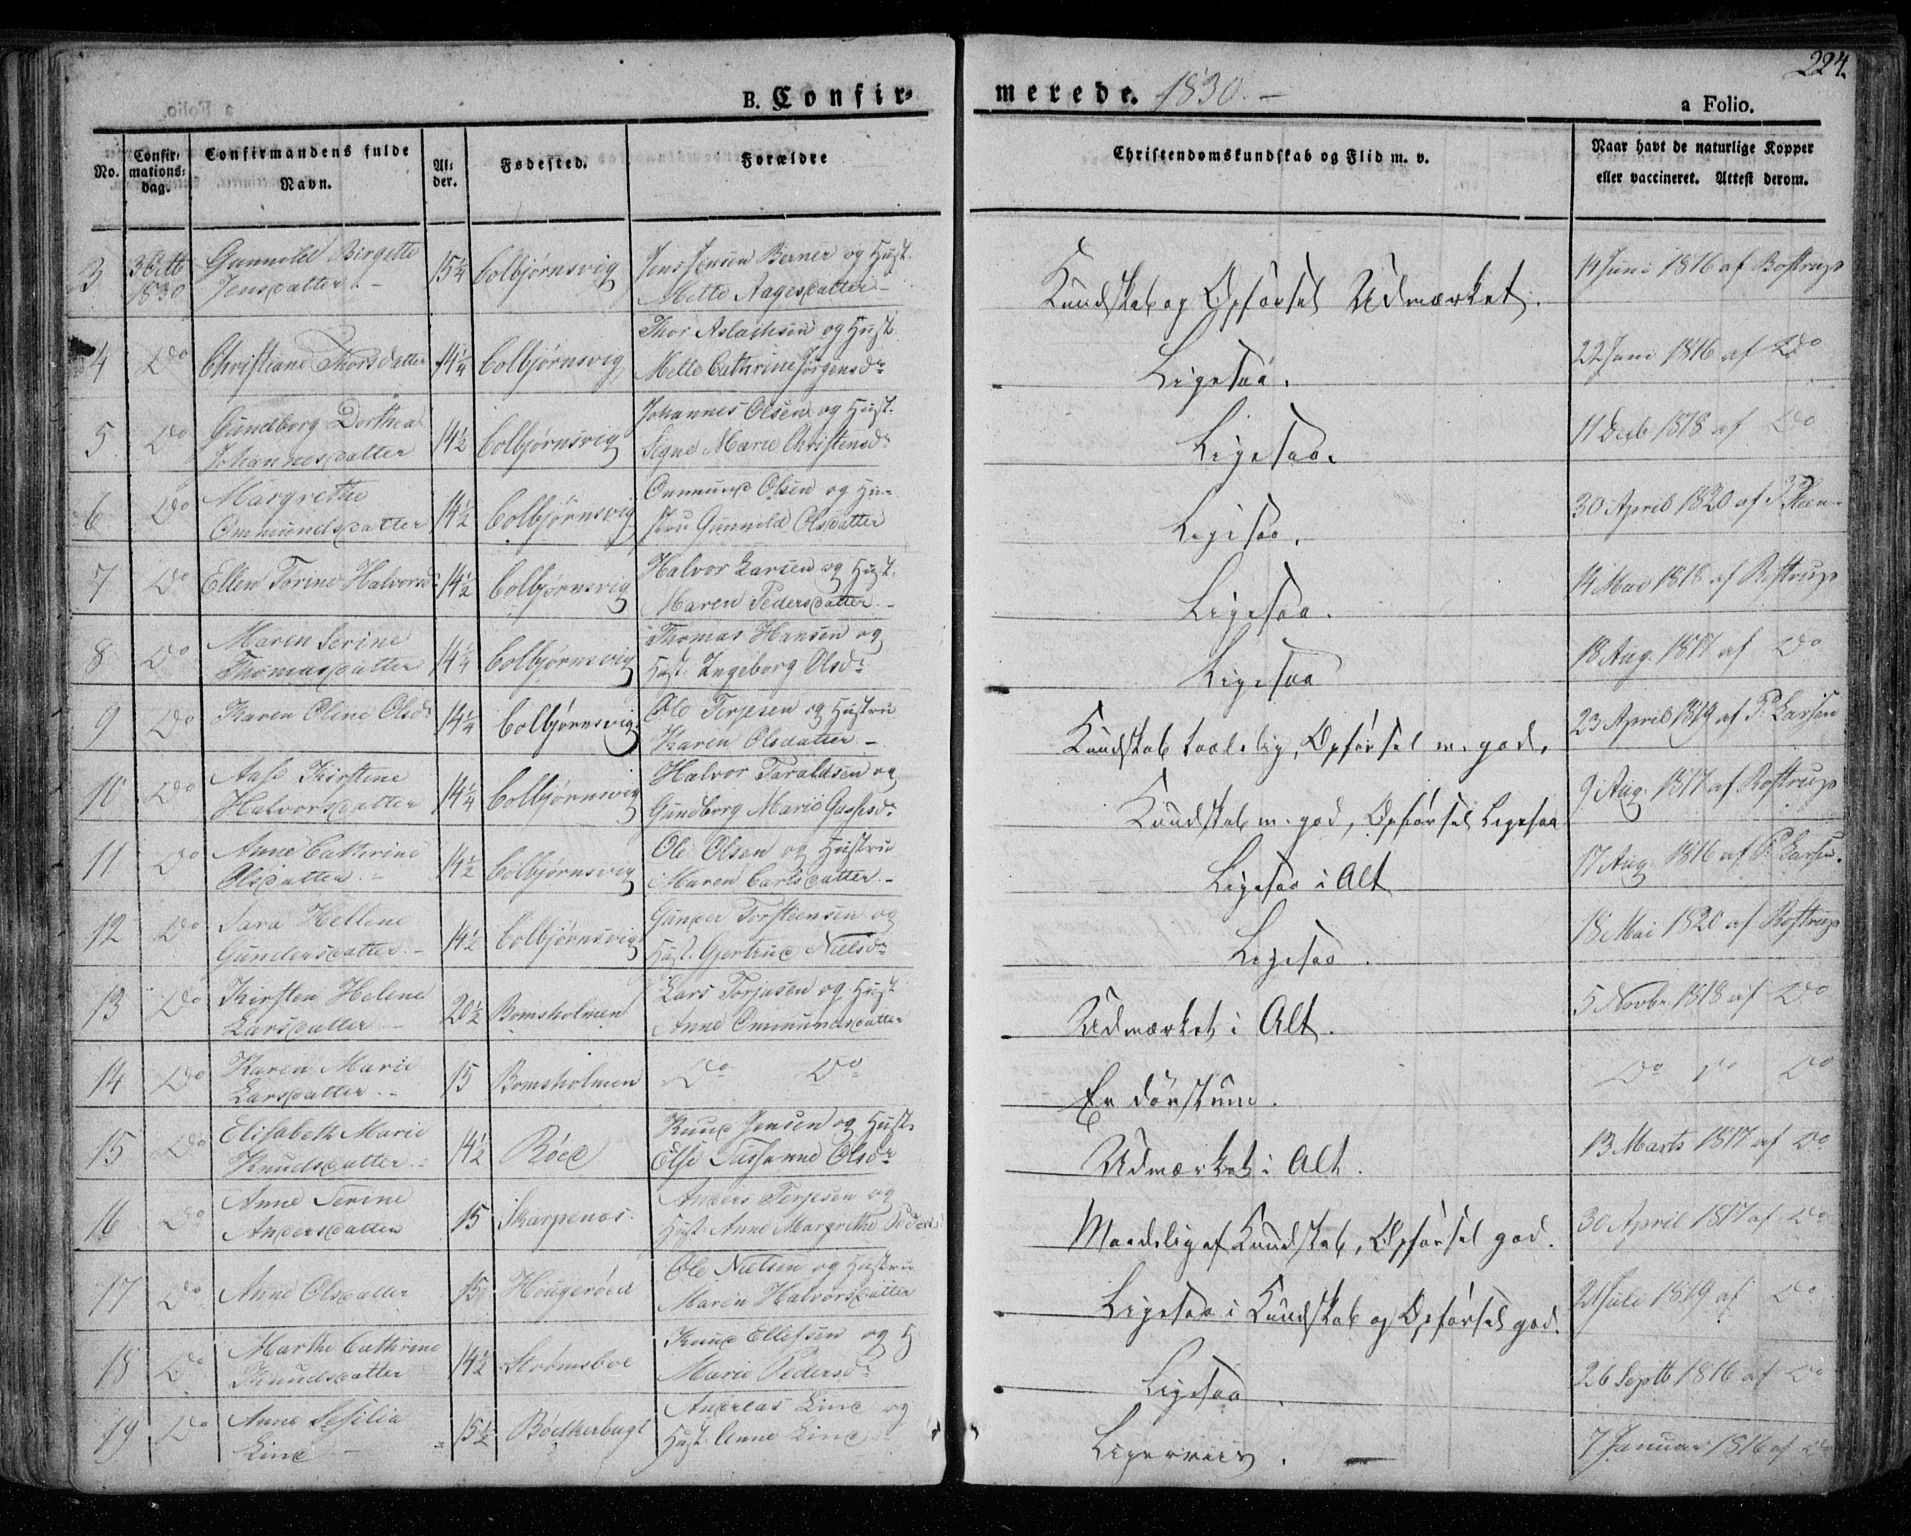 224.
B. Confirmerede. 1830.–
a Folio.
No. Confirmations-dag. Confirmandens fulde Navn. Alder. Fødested. Forældre Christendomskundskab og Flid m. v. Naar havt de naturlige Kopper eller vaccineret. Attest derom.
3 3 Octb 1830 Gunnild Birgette Jensdatter.– 15¼ Colbjørnsvig Jens Jensen Berner og Hust. Mette Aagesdatter– Kundskab og Opførsel Udmærket. 14 Juni 1816 af Rostrup
4 Do Christiane Thorsdatter 14¼ Colbjørnsvig Thor Aslachsen og Hust. Mette Cathrine Jørgensdr Ligesaa. 22 Juni 1816 af Do
5 Do Gundborg Dorthea Johannesdatter 14½ Colbjørnsvig Johannes Olsen og Hust. Signe Marie Christensdr Ligesaa. 11 Decb 1818 af Do
6 Do Margrethe Ommundsdatter 14½ Colbjørnsvig Ommund Olsen og Hustru Gunnild Olsdatter Ligesaa. 30 April 1820 af
7 Do Ellen Torine Halvorsd: 14½ Colbjørnsvig Halvor Larsen og Hust. Maren Pedersdatter.– Ligesaa. 14 Mai 1818 af Rostrup
8 Do Maren Serine Thomasdatter 14¼ Colbjørnsvig Thomas Hansen og Hust. Ingeborg Olsdr Ligesaa 18 Aug. 1817 af Do
9 Do Karen Oline Olsdr 14¼ Colbjørnsvig Ole Terjesen og Hustru Karen Olsdatter– Kundskab taalelig, Opførsel m. god. 23 April 1819 af P. Larsen
10 Do Aase Kirstine Halvorsdatter 14¼ Colbjørnsvig Halvor Taraldsen og Gundborg Marie Dr Kundskab m. god, Opførsel Ligesaa 9 Aug. 1817 af Rostrup
11 Do Anne Cathrine Olsdatter.– 14½ Colbjørnsvig Ole Olsen og Hustru Maren Carlsdatter.– Ligesaa i Alt 17 Aug. 1816 af P. Larsen.
12 Do Sara Hellene Gundersdatter.– 14½ Colbjørnsvig Gunder Torsteensen og Hust. Gjertrud Nielsdr Ligesaa. 18 Mai 1820 af Rostrup
13 Do Kirsten Helene Larsdatter.– 20½ Bomsholmen Lars Torjusen og Hust Anne Ommundsdatter Udmærket i Alt. 5 Novbr 1818 af Do
14 Do Karen Marie Larsdatter.– 15 Bomsholmen Do Do Do Do Do
15 Do Elisabeth Marie Knudsdatter.– 14½ Røed Knud Jensen og Hust. Else Susanne Olsdr Udmærket i Alt. 13 Marts 1817 af Do
16 Do Anne Serine Andersdatter 15 Skarpenæs Anders Terjesen og Hust. Anne Margrethe Pedersd Maadelig af Kundskab, Opførsel god. 30 April 1817 af Do
17 Do Anne Olsdatter 15 Hougerøed Ole Nielsen og Hustru Maren Halvorsdatter Ligesaa i Kundskab og Opførsel god. 21 Juli 1819 af Do
18 Do Marthe Cathrine Knudsdatter 14½ Strømsboe Knud Ellefsen og H Marie Pedersdr Ligesaa 26 Septb 1816 af Do
19 Do Anne Sesilia Lind– 15½ Bødkerbugt Andreas Lind og Hust. Anne Lind 7 Januar 1816 af Do